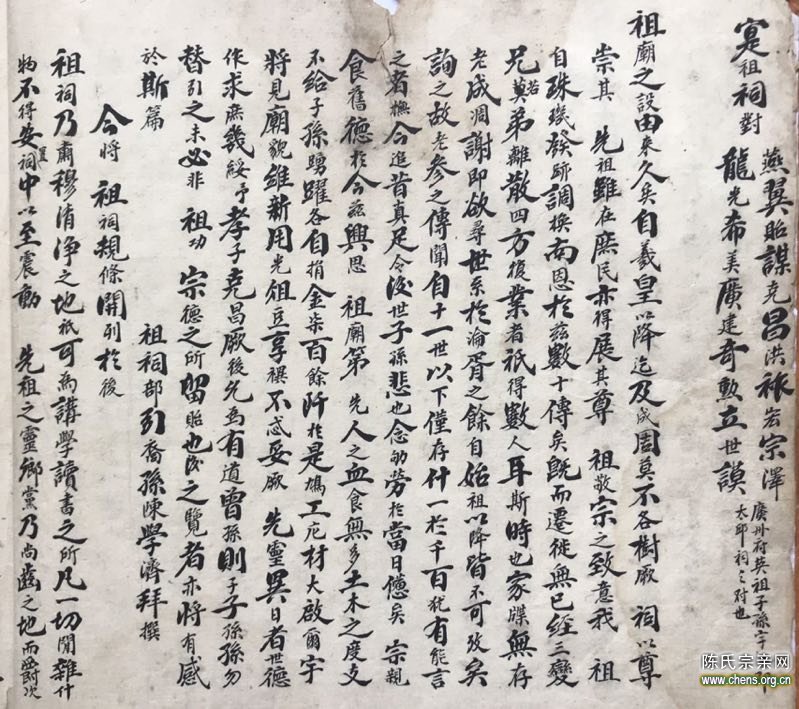 寔祖祠對
燕翼貽謀克昌洪祿宏宗澤
龍光希美廣建奇勳立世謨
廣州府英祖子孫字
太邱祠之对也
祖廟之設由來久矣自羲皇以降迄及成周莫不各樹厥 祠以尊
崇其 先祖雖在庶民亦得展其尊 祖敬宗之致意我 祖
自珠璣發跡調換南恩於茲數十傳矣既而遷徙無已經三變
兄若莫弟離散四方復業者祇得數人耳斯時也家牒無存
老成凋謝即欲尋世系於淪胥之餘自始祖以降皆不可攷矣
詢之故老参之傳聞自十一世以下僅存什一於千百犹有能言
之者撫今追昔真足令後世子孫悲也念劬劳於當日僾矣 宗親
食舊德於今兹興思 祖廟第 先人之血食無多土木之度支
不給子孫踴躍各自捐金柒百餘阡於是鳩工庀材大啟爾宇
將見廟貌維新用光俎豆享祺不忒妥厥 先靈異日者世德
作求庶幾綏予孝子克昌厥後允為有道曾孫則子子孫孫勿
替引之未必非 祖功 宗德之所留貽也後之覽者亦將有感
於斯篇
祖祠部引裔孫陳學濟拜撰
今將 祖祠規條開列於後
祖祠乃肅穆清净之地祇可為講學讀書之所凡一切閒雜什
物不得安置祠中以至震動 先祖之靈鄉黨乃尚齒之地而 次
陈氏宗亲网
www.chens.org.cn